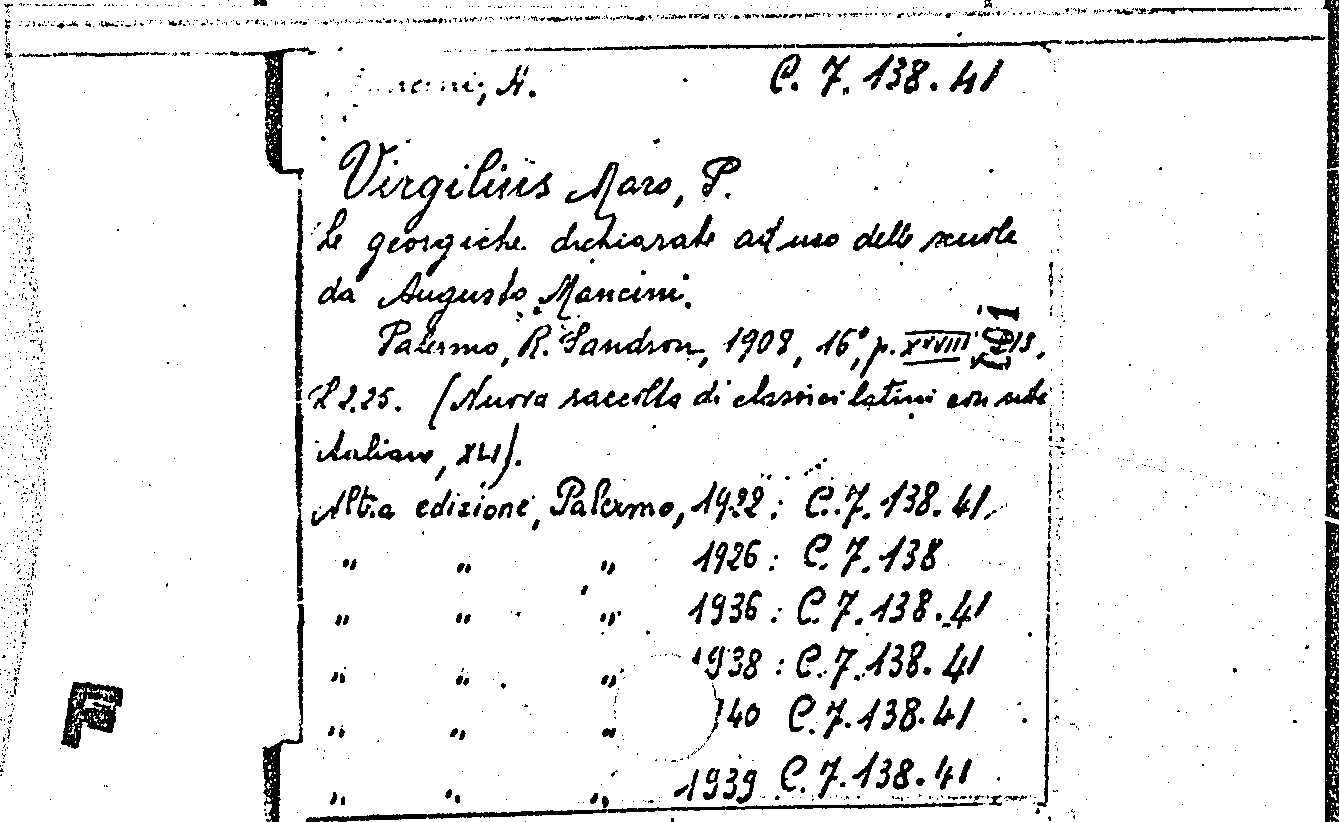 A. C. 7. 138. 41
Virgilius Maro, P.
Le georgiche dichiarate ad uso delle scuole
da Augusto Mancini.
Palermo, R. Sandron, 1908, 16°, p. XXVIII
L 2.25. (Nuova raccolta di classici latini con note
italiane, XLI).
Altra edizione, Palermo, 1922 : C. 7. 138. 41
" " " 1926 : C. 7. 138
" " " 1936 : C. 7. 138. 41
" " " 1938 : C. 7. 138. 41
" " " 40 C. 7. 138. 41
" " " 1939 C. 7. 138. 41